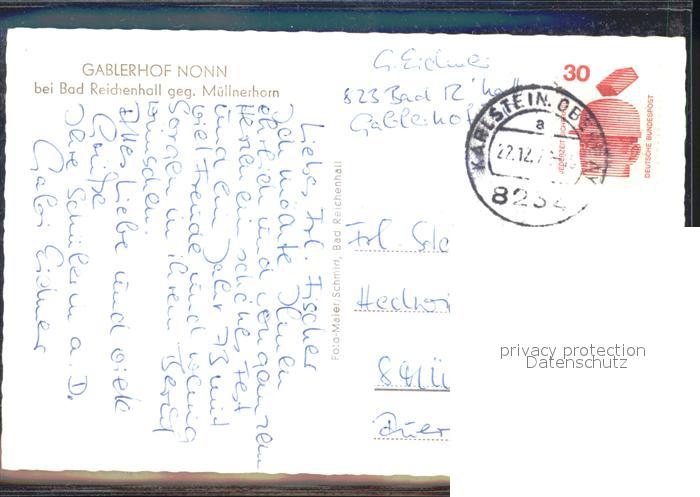 GABLERHOF NONN
bei Bad Reichenhall geg. Müllnerhorn
G. Eidner
823 Bad R'hall
Gablerhof
30
JEDERZEIT SICHERHEIT
DEUTSCHE BUNDESPOST
KARLSTEIN, OBERBAY
a
22.12.7
8234
Liebes Frl. Fischer
Ich möchte Ihnen
ehrlich und von ganzem
Herzen ein schönes Fest
und ein Jahr 73 mit
viel Freude und wenig
Sorgen in ihrem Beruf
wünschen.
Alles Liebe und viele
Grüße
Ihre Schülerin a. D.
Gabi Eidner
Foto-Maier/Schmirl, Bad Reichenhall
Frl.
Hedwi
8 Mü
privacy protection
Datenschutz